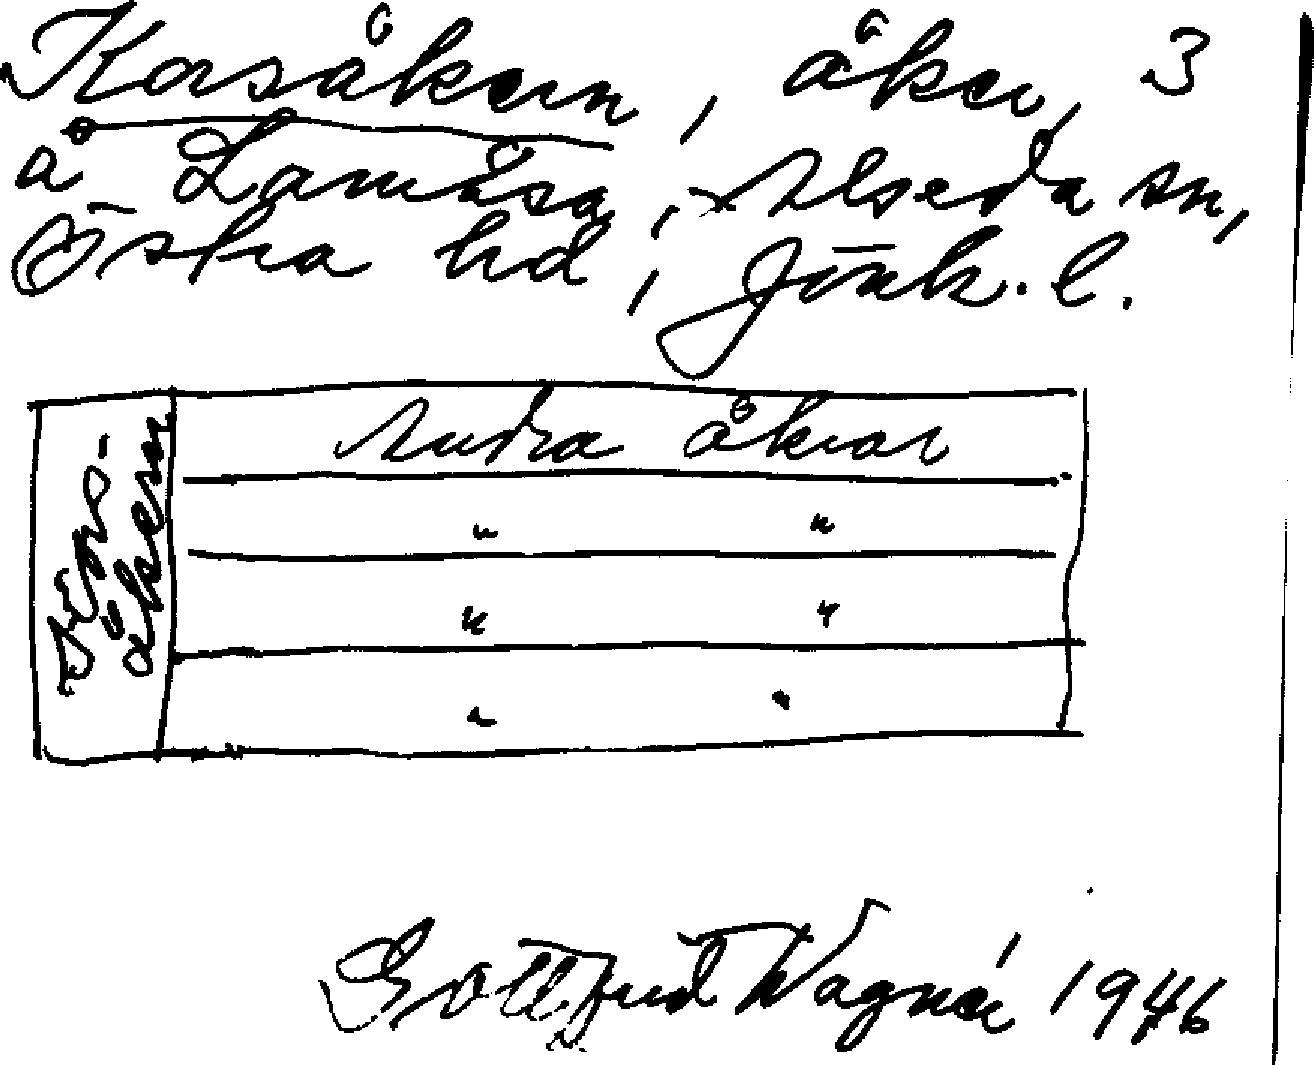 Korsåkern, åker, 3
å Lamåsa, Alseda sn,
Östra hd, Jönk. l.
Andra åkrar
" "
" "
" "
åkern
Gottfrid Wagnér 1946